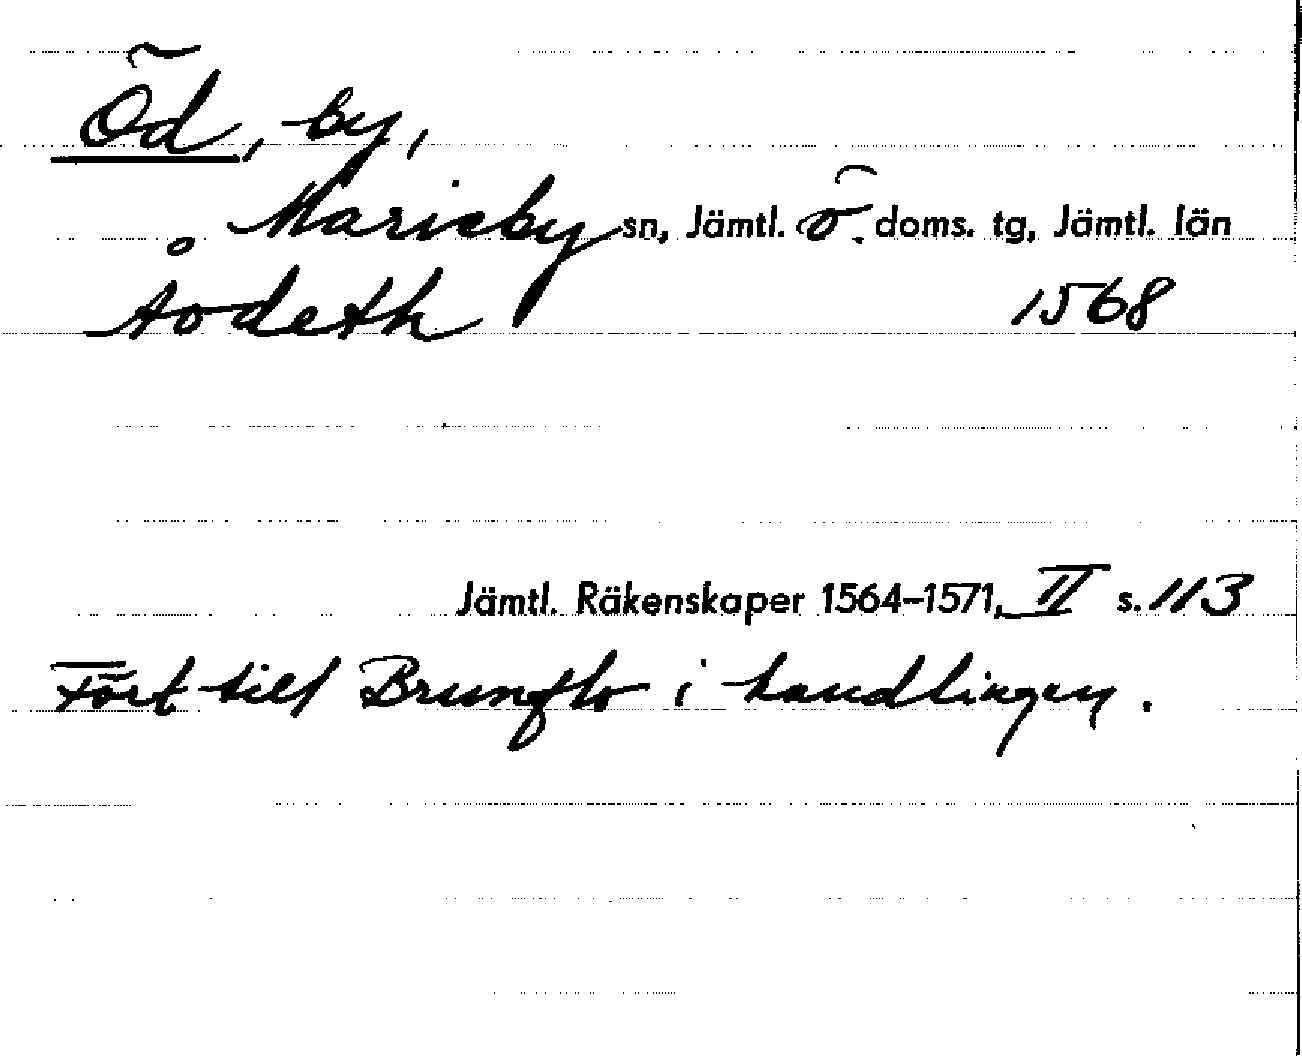 Öd, by,
Marieby sn, Jämtl. ö. doms. tg, Jämtl. län
Åodeth 1568
Jämtl. Räkenskaper 1564–1571, II s. 113
Fört till Brunflo i handlingen.